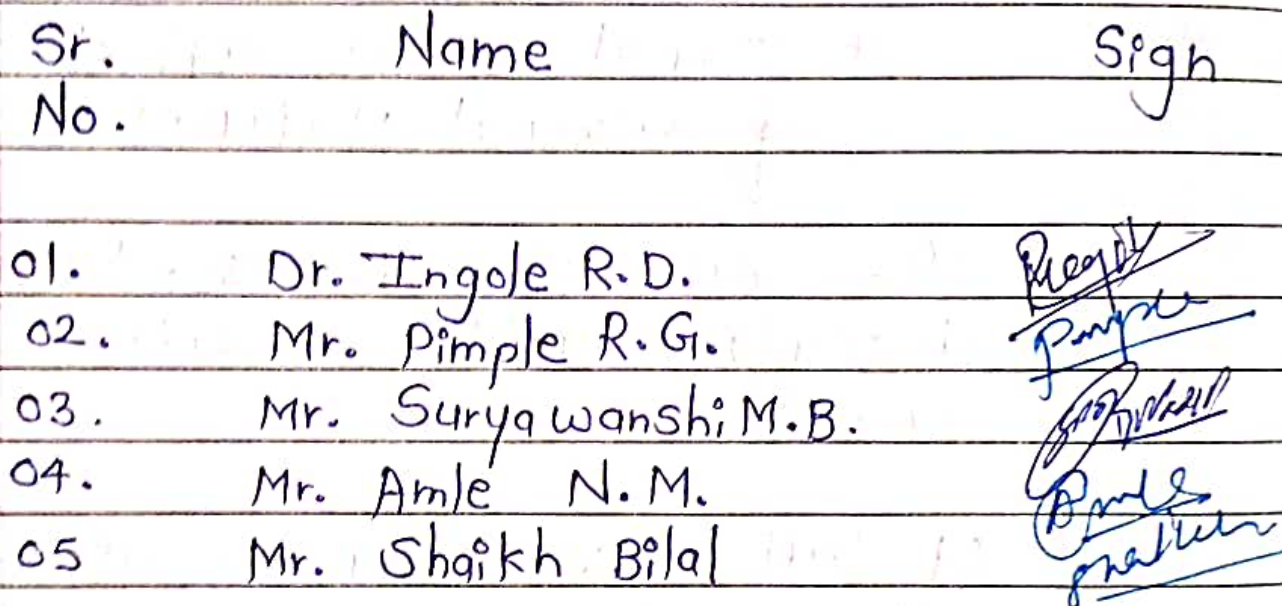 Sr. Name Sign
No.
01. Dr. Ingole R.D.
02. Mr. Pimple R.G. Pimple
03. Mr. Suryawanshi M.B.
04. Mr. Amle N.M. Amle
05 Mr. Shaikh Bilal